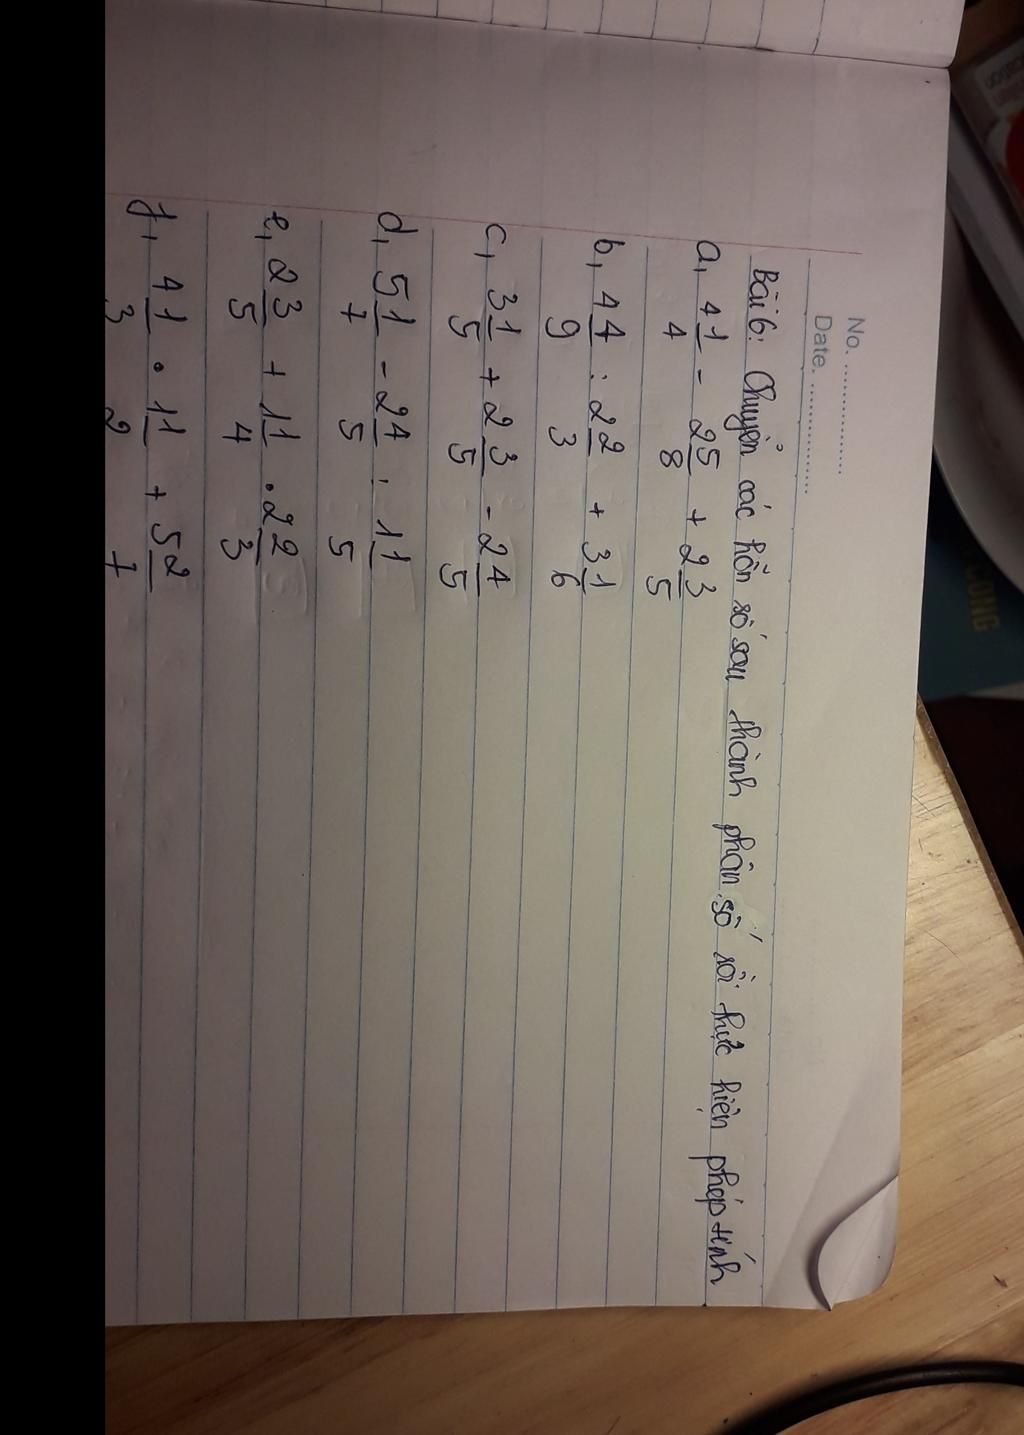 No. ................
Date. ................
Bài 6: Chuyển các hỗn số sau thành phân số rồi thực hiện phép tính
a, 4 1/4 - 2 5/8 + 2 3/5
b, 4 4/9 : 2 2/3 + 3 1/6
c, 3 1/5 + 2 3/5 - 2 4/5
d, 5 1/7 - 2 4/5 : 1 1/5
e, 2 3/5 + 1 1/4 . 2 2/3
f, 4 1/3 . 1 1/2 + 5 2/7